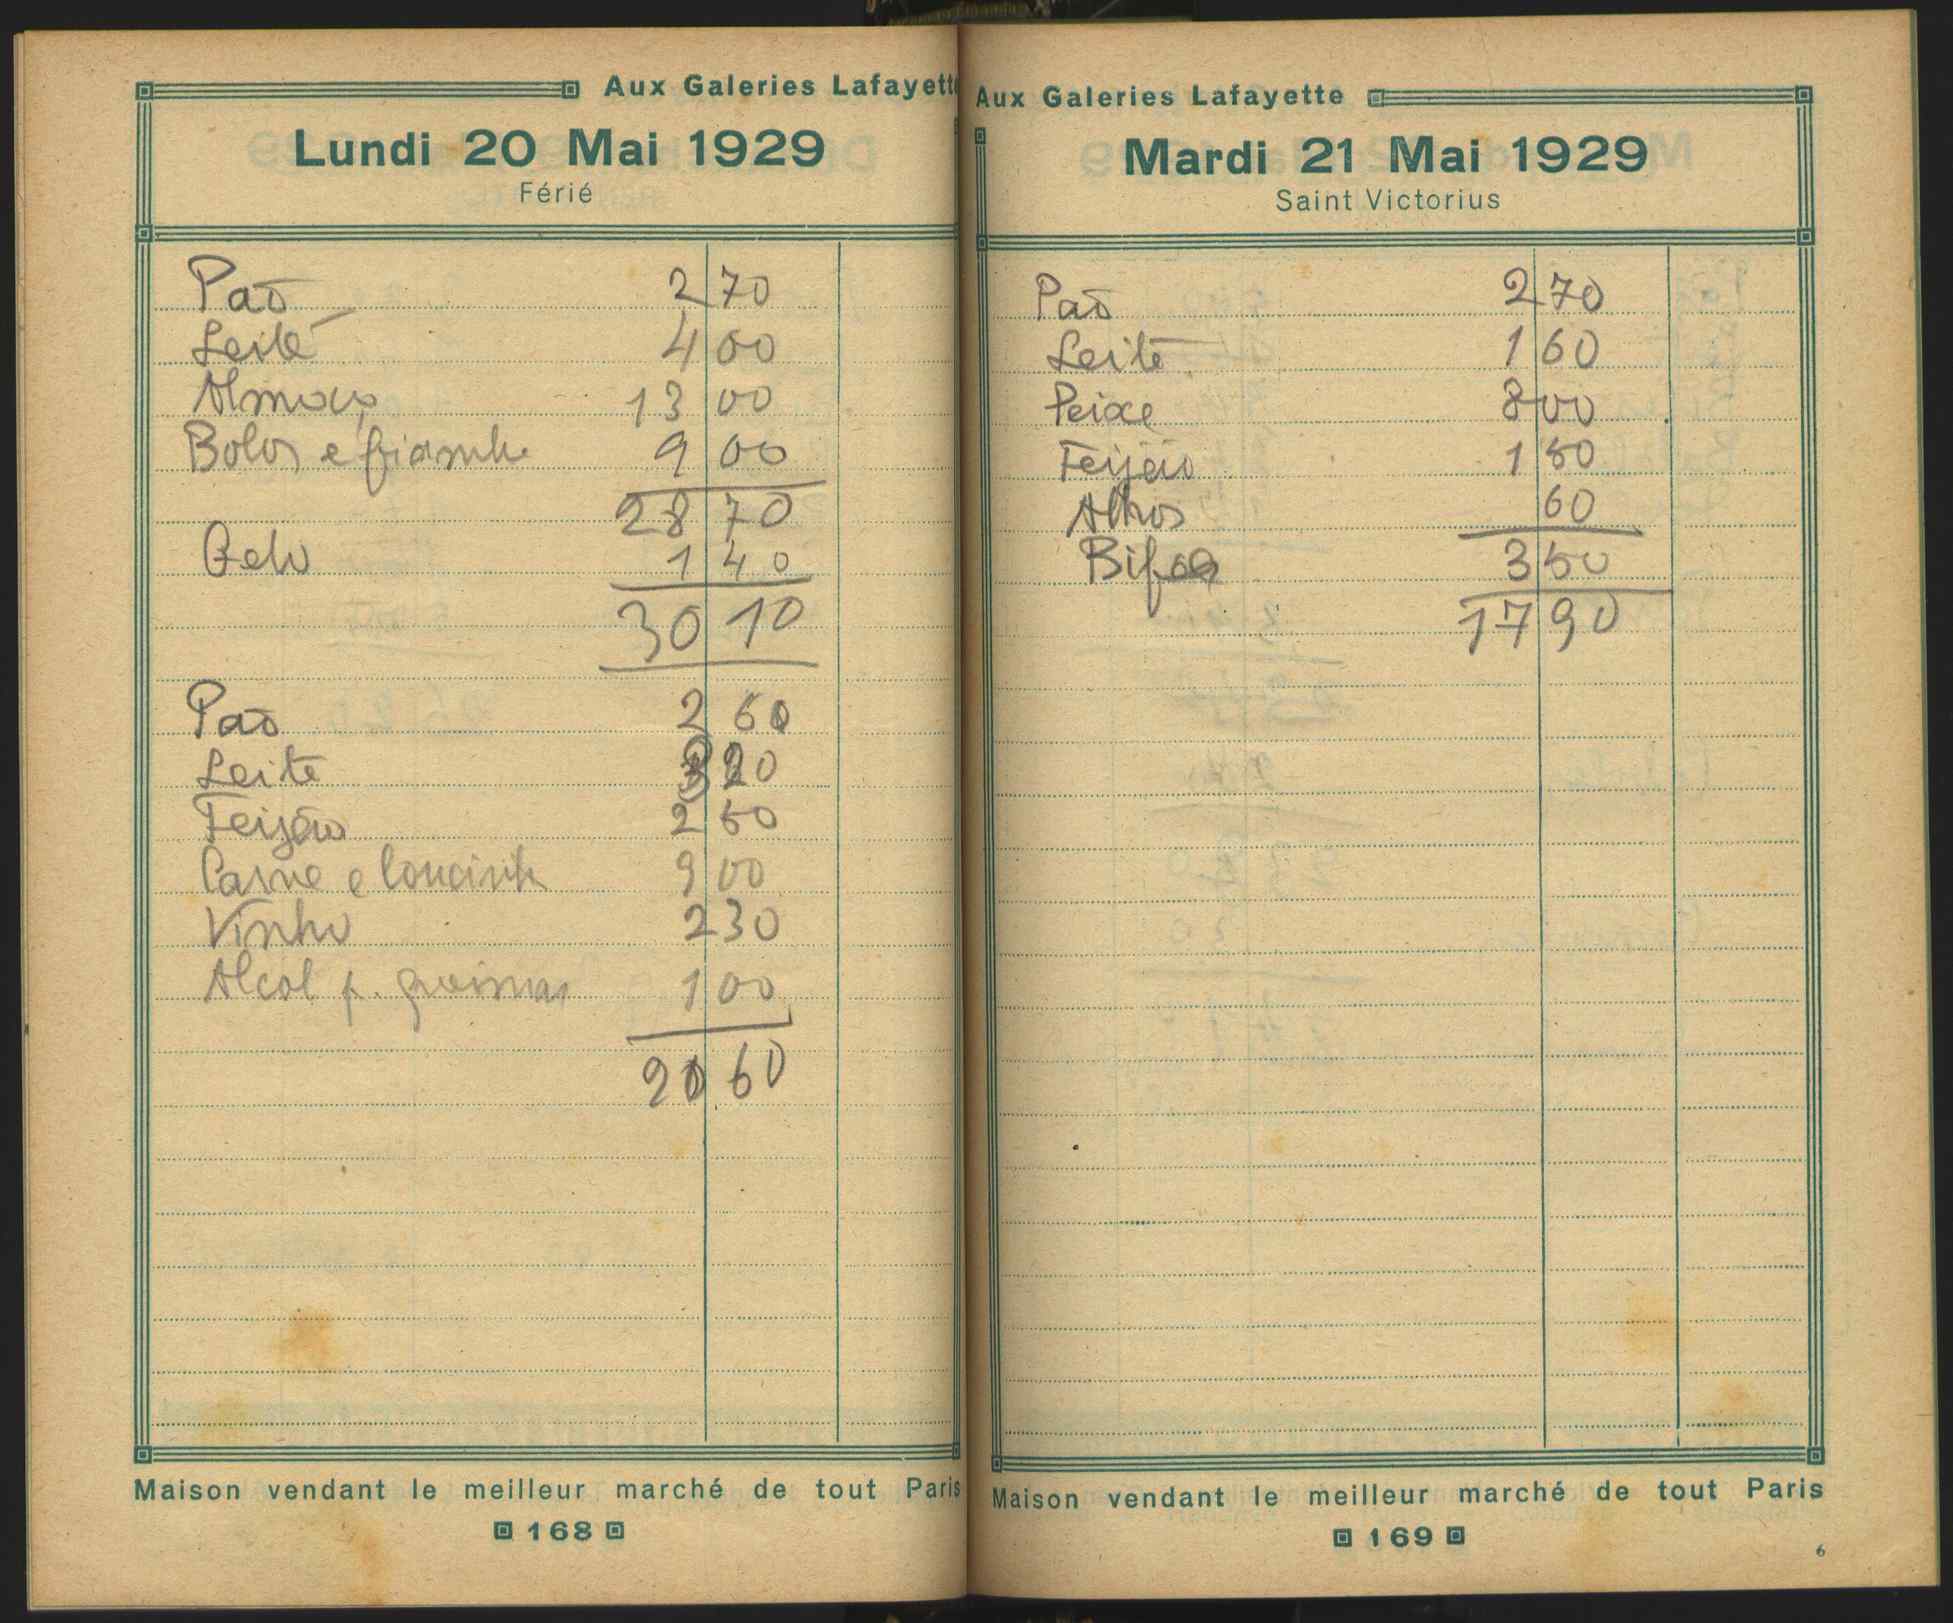 Aux Galeries Lafayette
Lundi 20 Mai 1929
Férié
Pão 2 70
Leite 4 00
Almoço 13 00
Bolos e fiambre 9 00
28 70
Gelo 1 40
30 10
Pão 2 60
Leite 3 20
Feijão 2 50
Carne e toucinho 9 00
Vinho 2 30
Alcol p. 1 00
20 60
Maison vendant le meilleur marché de tout Paris
168
Aux Galeries Lafayette
Mardi 21 Mai 1929
Saint Victorius
Pão 2 70
Leite 1 60
Peixe 8 00
Feijão 1 50
Alhos 60
Bifes 3 50
17 90
Maison vendant le meilleur marché de tout Paris
169
6